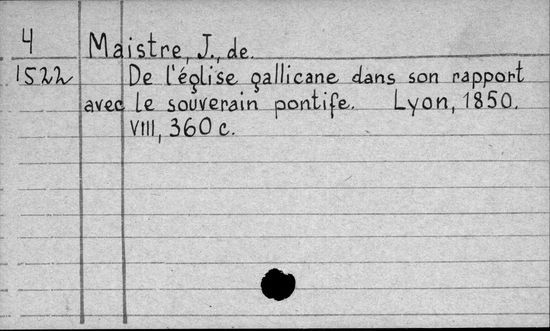 4 Maistre, J., de.
1522 De l'église gallicane dans son rapport
avec le souverain pontife. Lyon, 1850.
VIII, 360 c.